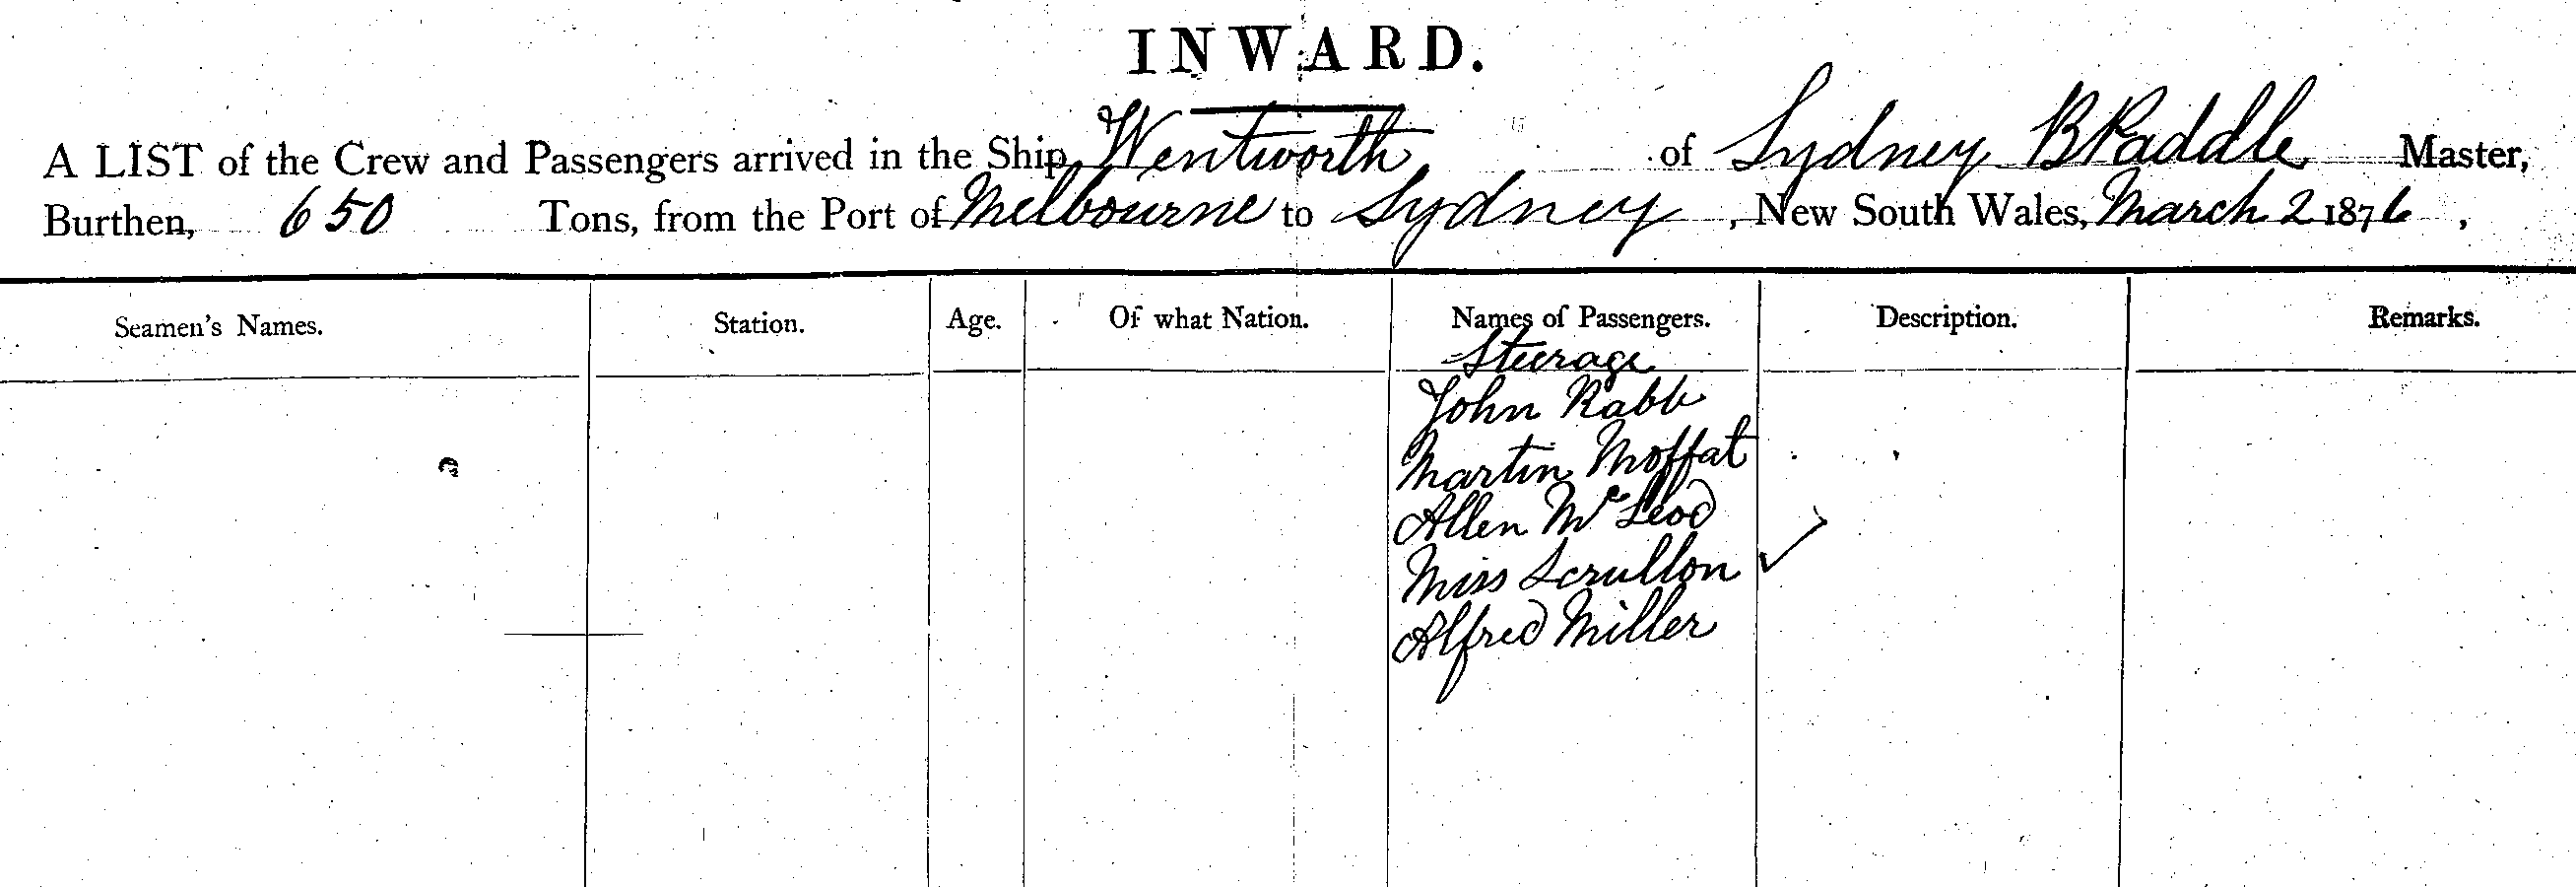 INWARD.
A LIST of the Crew and Passengers arrived in the Ship Wentworth of Sydney B Paddle Master,
Burthen, 650 Tons, from the Port of Melbourne to Sydney, New South Wales, March 2 1876,
Seamen's Names. Station. Age. Of what Nation. Names of Passengers. Description. Remarks.
Steerage
John Rabb
Martin Moffat
Allen McLeod
Miss Scrullon
Alfred Miller